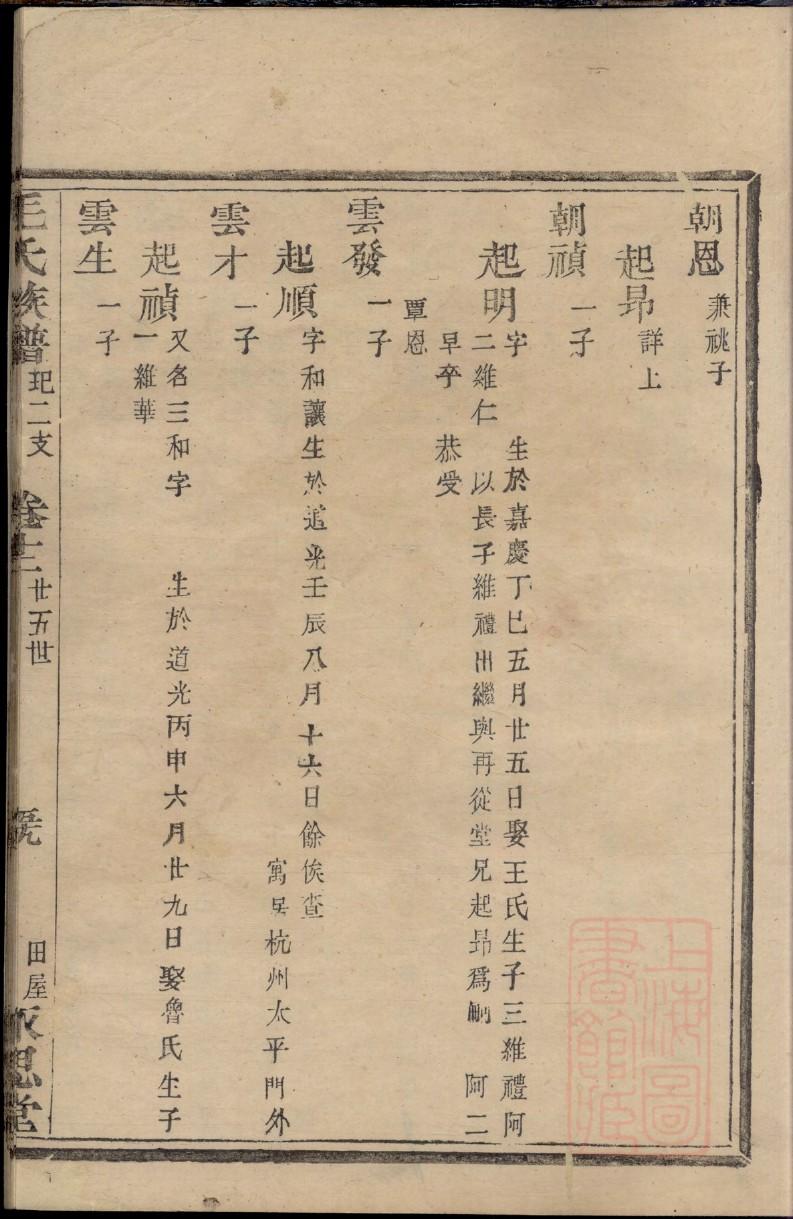 朝恩 兼祧子
起昂 詳上
朝禎 一子
起明 字 生於嘉慶丁巳五月廿五日娶王氏生子三維禮阿
二維仁 以長子維禮出繼與再從堂兄起昂爲嗣 阿二
早卒 恭受
覃恩
雲發 一子
起順 字和讓生於道光壬辰八月十六日餘俟查
寓居杭州太平門外
雲才 一子
起禎 又名三和字 生於道光丙申六月廿九日娶魯氏生子
一維華
雲生 一子
毛氏族譜 玘二支 卷十二 廿五世 田屋 永思堂
上海圖
書館藏